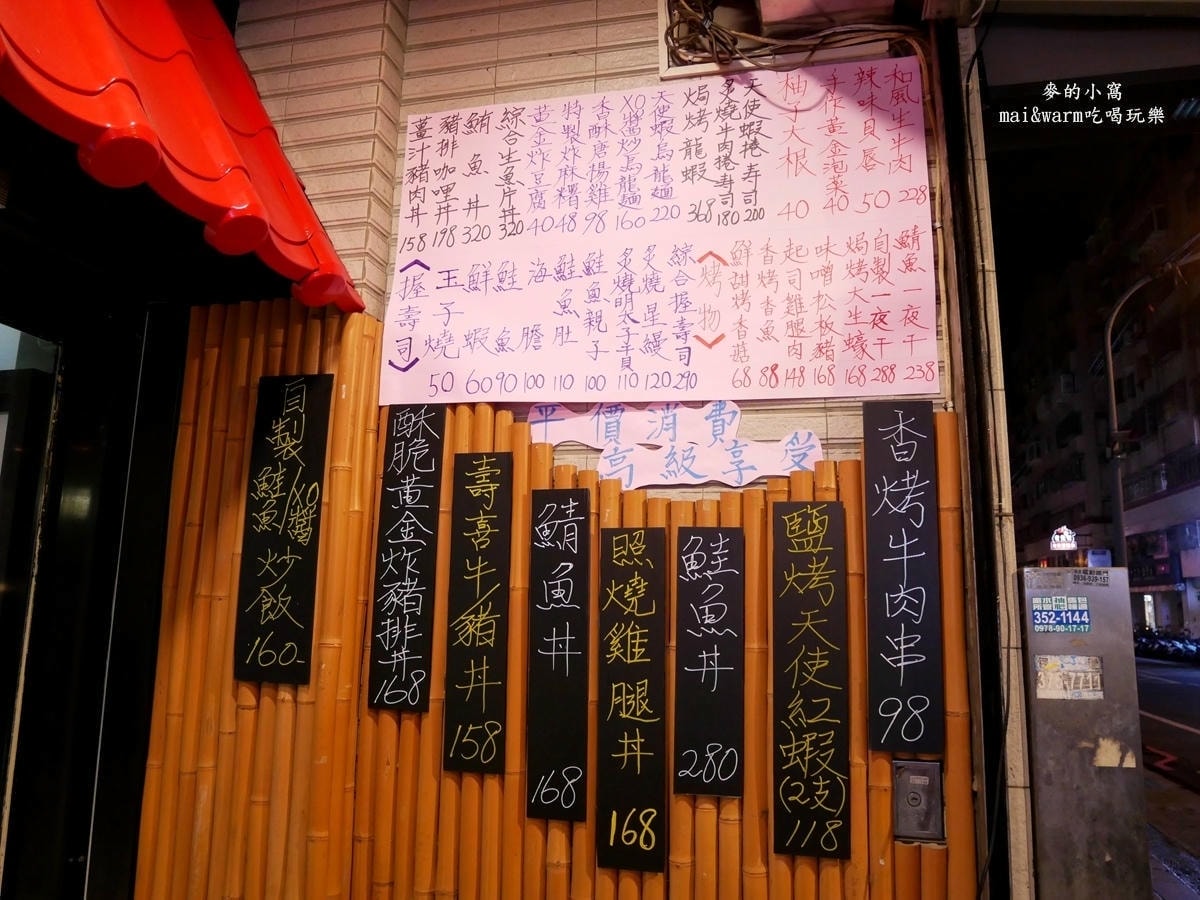 麥的小窩
mai&warm吃喝玩樂
和風生牛肉 228
辣味貝唇 50
手作黃金泡菜 40
柚子大根 40
天使蝦捲壽司 200
炙燒牛肉捲壽司 180
焗烤龍蝦 368
天使蝦烏龍麵 220
XO醬炒烏龍麵 160
香酥唐揚雞 98
特製炸麻糬 48
黃金炸豆腐 40
綜合生魚片丼 320
鮪魚丼 320
豬排咖哩丼 198
薑汁豬肉丼 158
鯖魚一夜干 238
自製一夜干 288
焗烤大生蠔 168
味噌松板豬 168
起司雞腿肉 148
香烤香魚 88
鮮甜烤香菇 68
<烤物>
綜合握壽司 290
炙燒星鰻 120
炙燒明太子干貝 110
鮭魚親子 100
鮭魚肚 110
海膽 100
鮭魚 90
鮮蝦 60
玉子燒 50
<握壽司>
平價消費
高級享受
香烤牛肉串 98
鹽烤天使紅蝦(2支) 118
鮭魚丼 280
照燒雞腿丼 168
鯖魚丼 168
壽喜牛/豬丼 158
酥脆黃金炸豬排丼 168
自製鮭魚/XO醬炒飯 160-
0936-939-157
352-1144
0978-90-17-17